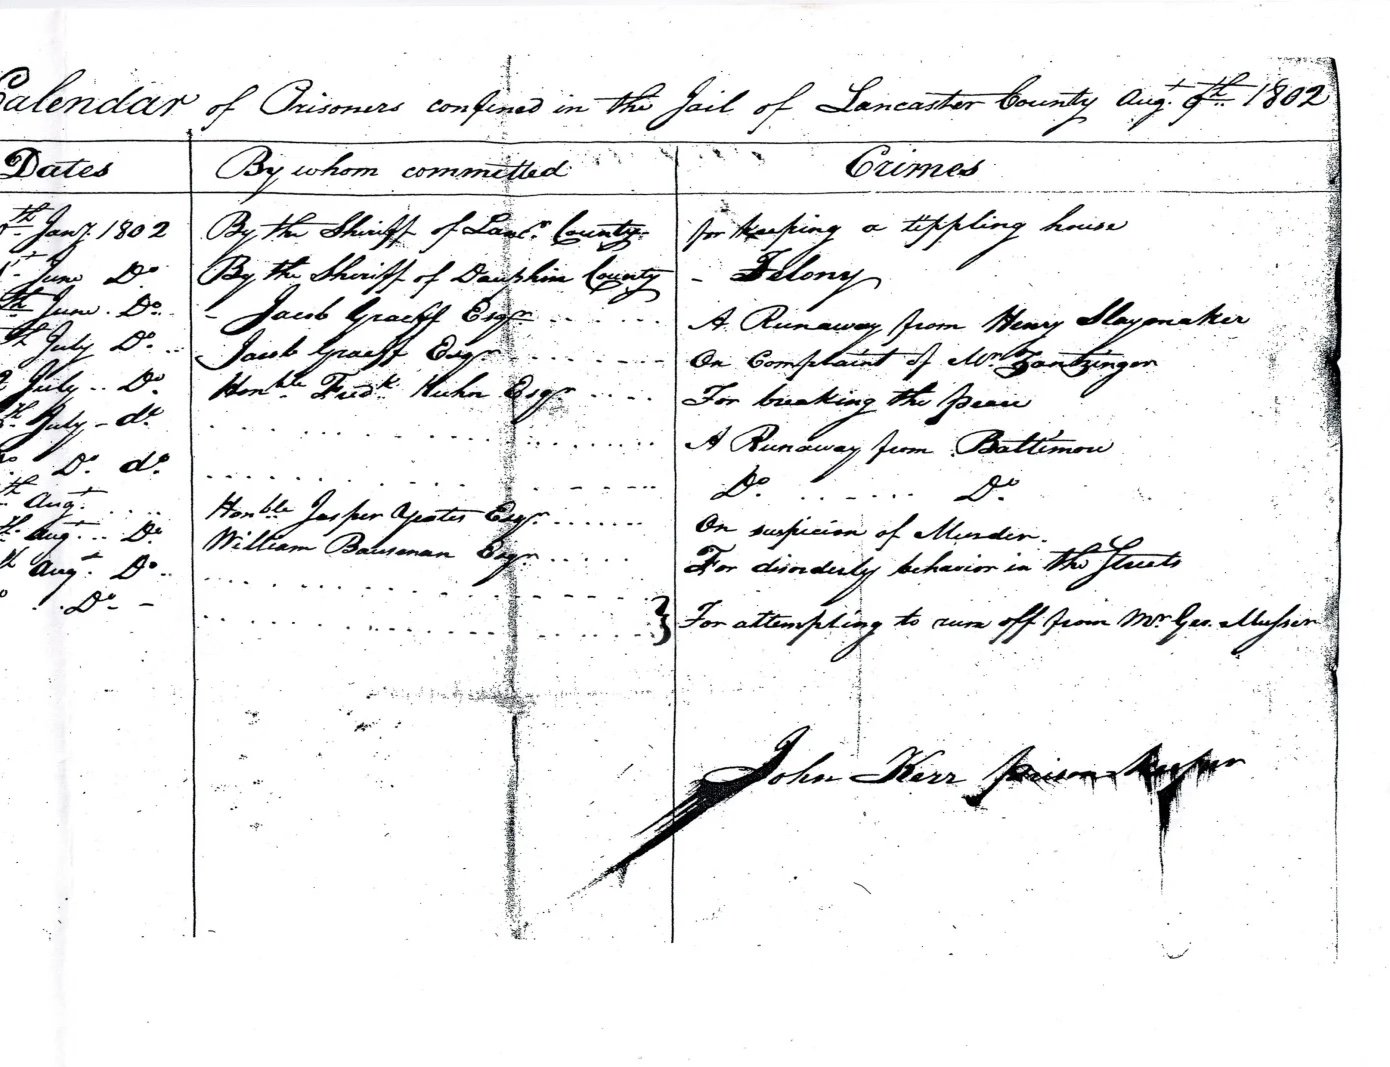 Calendar of Prisoners confined in the Jail of Lancaster County Augt. 9th 1802
Dates By whom committed Crimes
th Jany. 1802 By the Shiriff of Lancr. County for keeping a tippling house
June Do. By the Sheriff of Dauphin County - Felony
th June. Do. - Jacob Graeff Esqr. A Runaway from Henry Slaymaker
th July Do. Jacob Graeff Esqr On Complaint of Mr. Zantzinger
July Do. Honble. Fredk. Kuhn Esqr For breaking the peace
th July - do. A Runaway from Baltimore
Do. do. Do. Do.
th Augt. Honble Jasper Yeates Esqr. On suspicion of Murder.
th Augt. Do. William Bausman Esqr For disorderly behavior in the Streets
th Augt. Do.
Do. - } For attempting to run off from Mr. Geo. Musser
John Kerr prison keeper